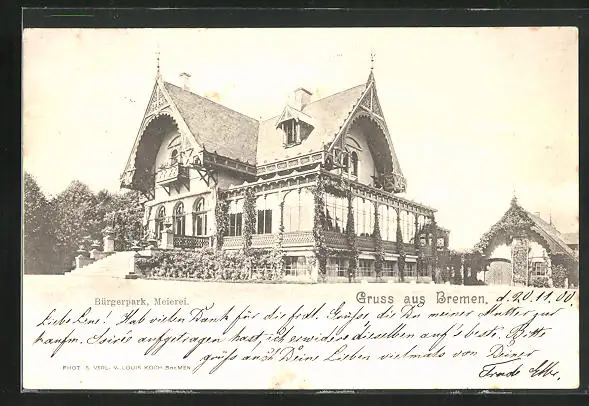 Bürgerpark, Meierei.
Gruss aus Bremen, d. 20.11.00.
Liebe Lene! Hab vielen Dank für die frdl. Grüße die Du meiner Mutter zur
kaufm. Soirée aufgetragen hast, ich erwidere dieselben auf's beste. Bitte
grüße auch Deine Lieben vielmals von Deiner
PHOT. & VERL. V. LOUIS KOCH. BREMEN